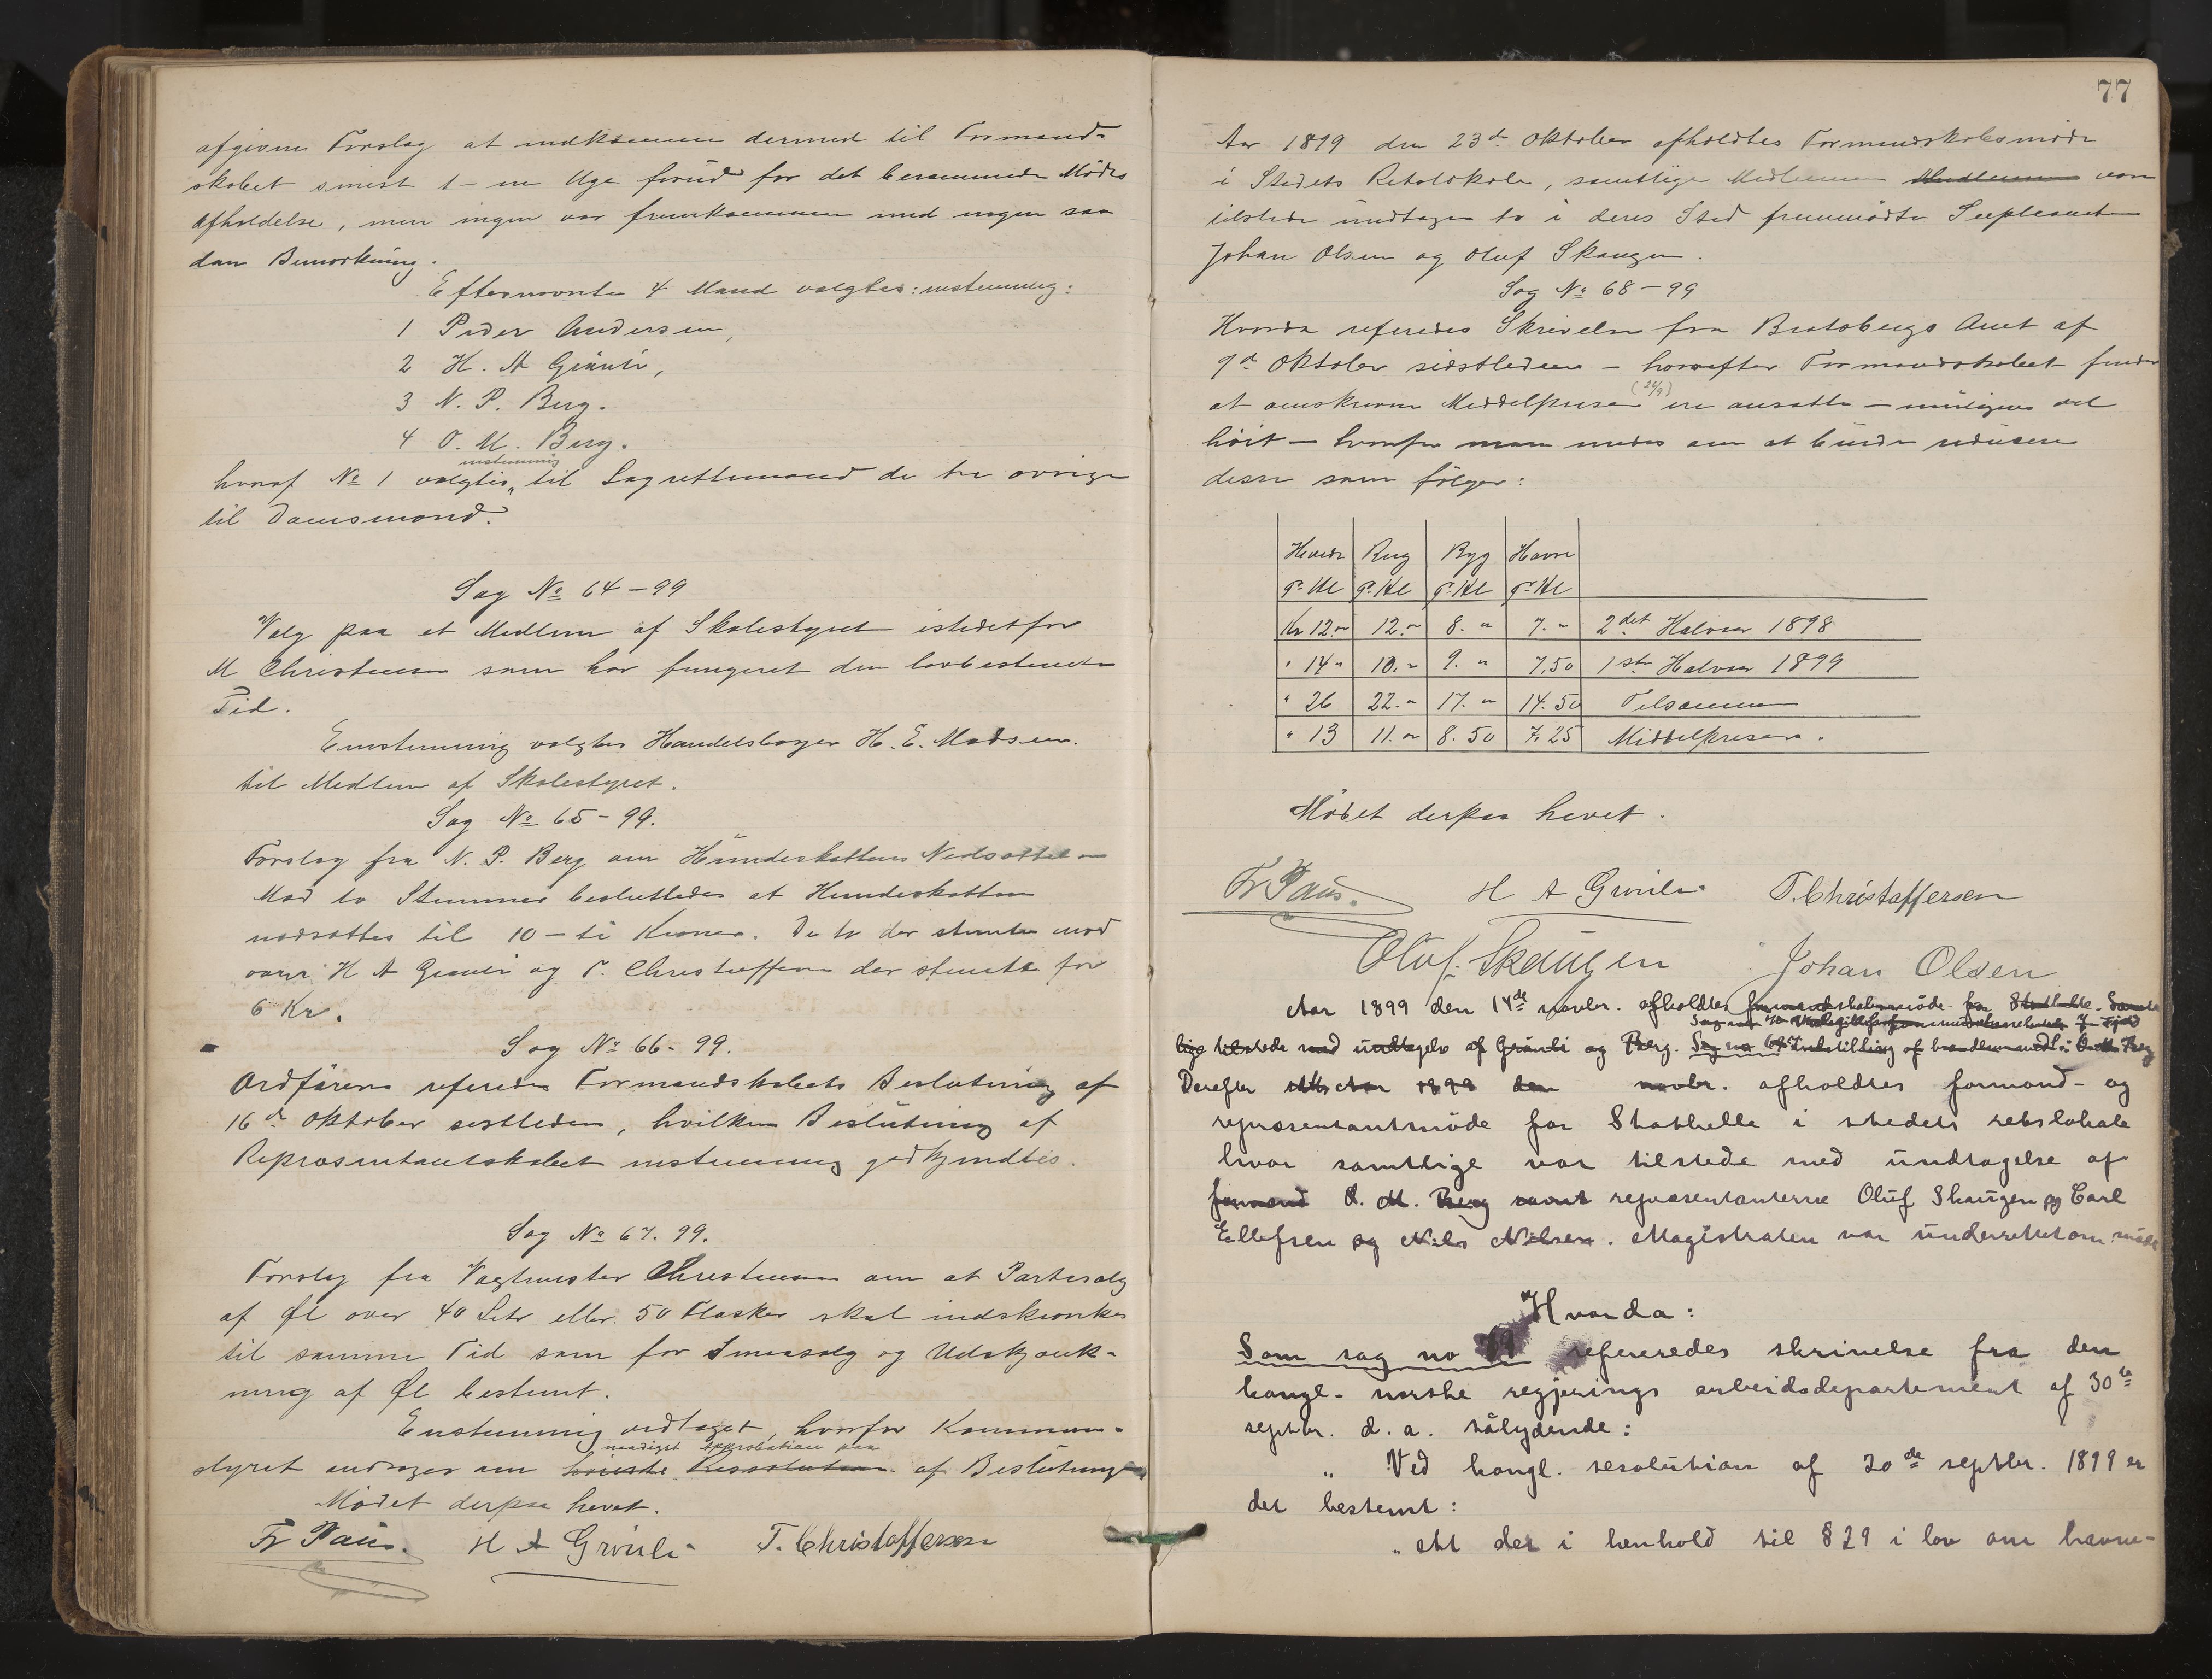 afgivne Forslag at indkomme dermed til Formand-
skabet senest 1 - en Uge forud for det berammede Mødes
Afholdelse, men ingen var fremkommen med nogen saa
dan Bemærkning.
Efternævnte 4 Mænd valgtes enstemmig:
1 Peder Andersen,
2 H. A Grønli,
3 N. P. Berg.
4 O. M. Berg.
hvoraf No 1 valgtes enstemmig til Lagrettemand de tre øvrige
til Domsmænd.
Sag No 64-99
Valg paa et Medlem af Skolestyret istedetfor
M Christensen som har fungeret den lovbestemte
Tid.
Enstemmig valgtes Handelsborger H. E. Madsen.
til Medlem af Skolestyret.
Sag No 65-99.
Forslag fra N. P. Berg om Hundeskattens Nedsættelse
Mod to Stemmer besluttedes at Hundeskatten
nedsættes til 10 - ti Kroner. De to der stemte mod
var H A Grønli og T. Christoffersen der stemte for
6 Kr.
Sag No 66-99.
Ordføreren refererede Formandskabets Beslutning af
16de Oktober sistleden, hvilken Beslutning af
Repræsentantskabet enstemmig godkjendtes.
Sag No 67.99.
Forslag fra Vagtmester Christensen om at Partisalg
af Øl over 40 Liter eller 50 Flasker skal indskrænkes
til samme Tid som for Smaasalg og Udskjænk-
ning af Øl bestemt.
Enstemmig vedtaget, hvorfor Kommune-
styret andrager om naadigst Approbation paa høieste Ressolution af Beslutningen
Mødet derpaa hævet.
Fr Paus. H A Grønli T. Christoffersen
77
Aar 1899 den 23de Oktober afholdtes Formandskabsmøde
i Stedets Retslokale, samtlige Medlemmer Medlemmer vare
tilstede undtagen to i deres Sted fremmødte Suppleanterne
Johan Olsen og Oluf Skaugen.
Sag No 68-99
Hvorda referedes Skrivelse fra Bratsbergs Amt af
9de Oktober sidstleden - hvorefter Formandskabet finder
at omskrevne Middelpriser (26/9) ere ansatte - muligens vel
høit - hvorfor man enedes om at burde reducere
disse som følger:
Hvede Rug Byg Havre
pr. Hl pr. Hl pr. Hl pr. Hl
Kr 12." 12." 8. " 7. " 2det Halvaar 1898
" 14 " 10. " 9. " 7,50 1ste Halvaar 1899
" 26 22. " 17. " 14.50 Tilsammen
" 13 11. " 8.50 7.25 Middelprisen.
Mødet derpaa hævet.
Fr Paus. H A Grønli T. Christoffersen
Oluf Skaugen Johan Olsen
Aar 1899 den 14de novbr. afholdtes formandskabsmöde for Stathelle. Samt-
lige tilstede med undtagelse af Grönli og Berg. Sag no 69 Indstilling af brandlemandt: O. M. Berg
Derefter Aar 1899 den novbr. afholdtes formand- og
repræsentantmöde for Stathelle i stedets retslokale
hvor samtlige var tilstede med undtagelse af
formand O. M. Berg samt repræsentanterne Oluf Skaugen og Carl
Ellefsen og Nils Nilsen. Magistraten var underrettet om mödet
Hvorda:
Som sag no 69 refereredes skrivelse fra den
kongl. norske regjerings arbeidsdepartement af 30te
septbr. d. a. sålydende:
" Ved kongl. resolution af 20de septbr. 1899 er
det bestemt:
"At der i henhold til § 29 i lov om havne-